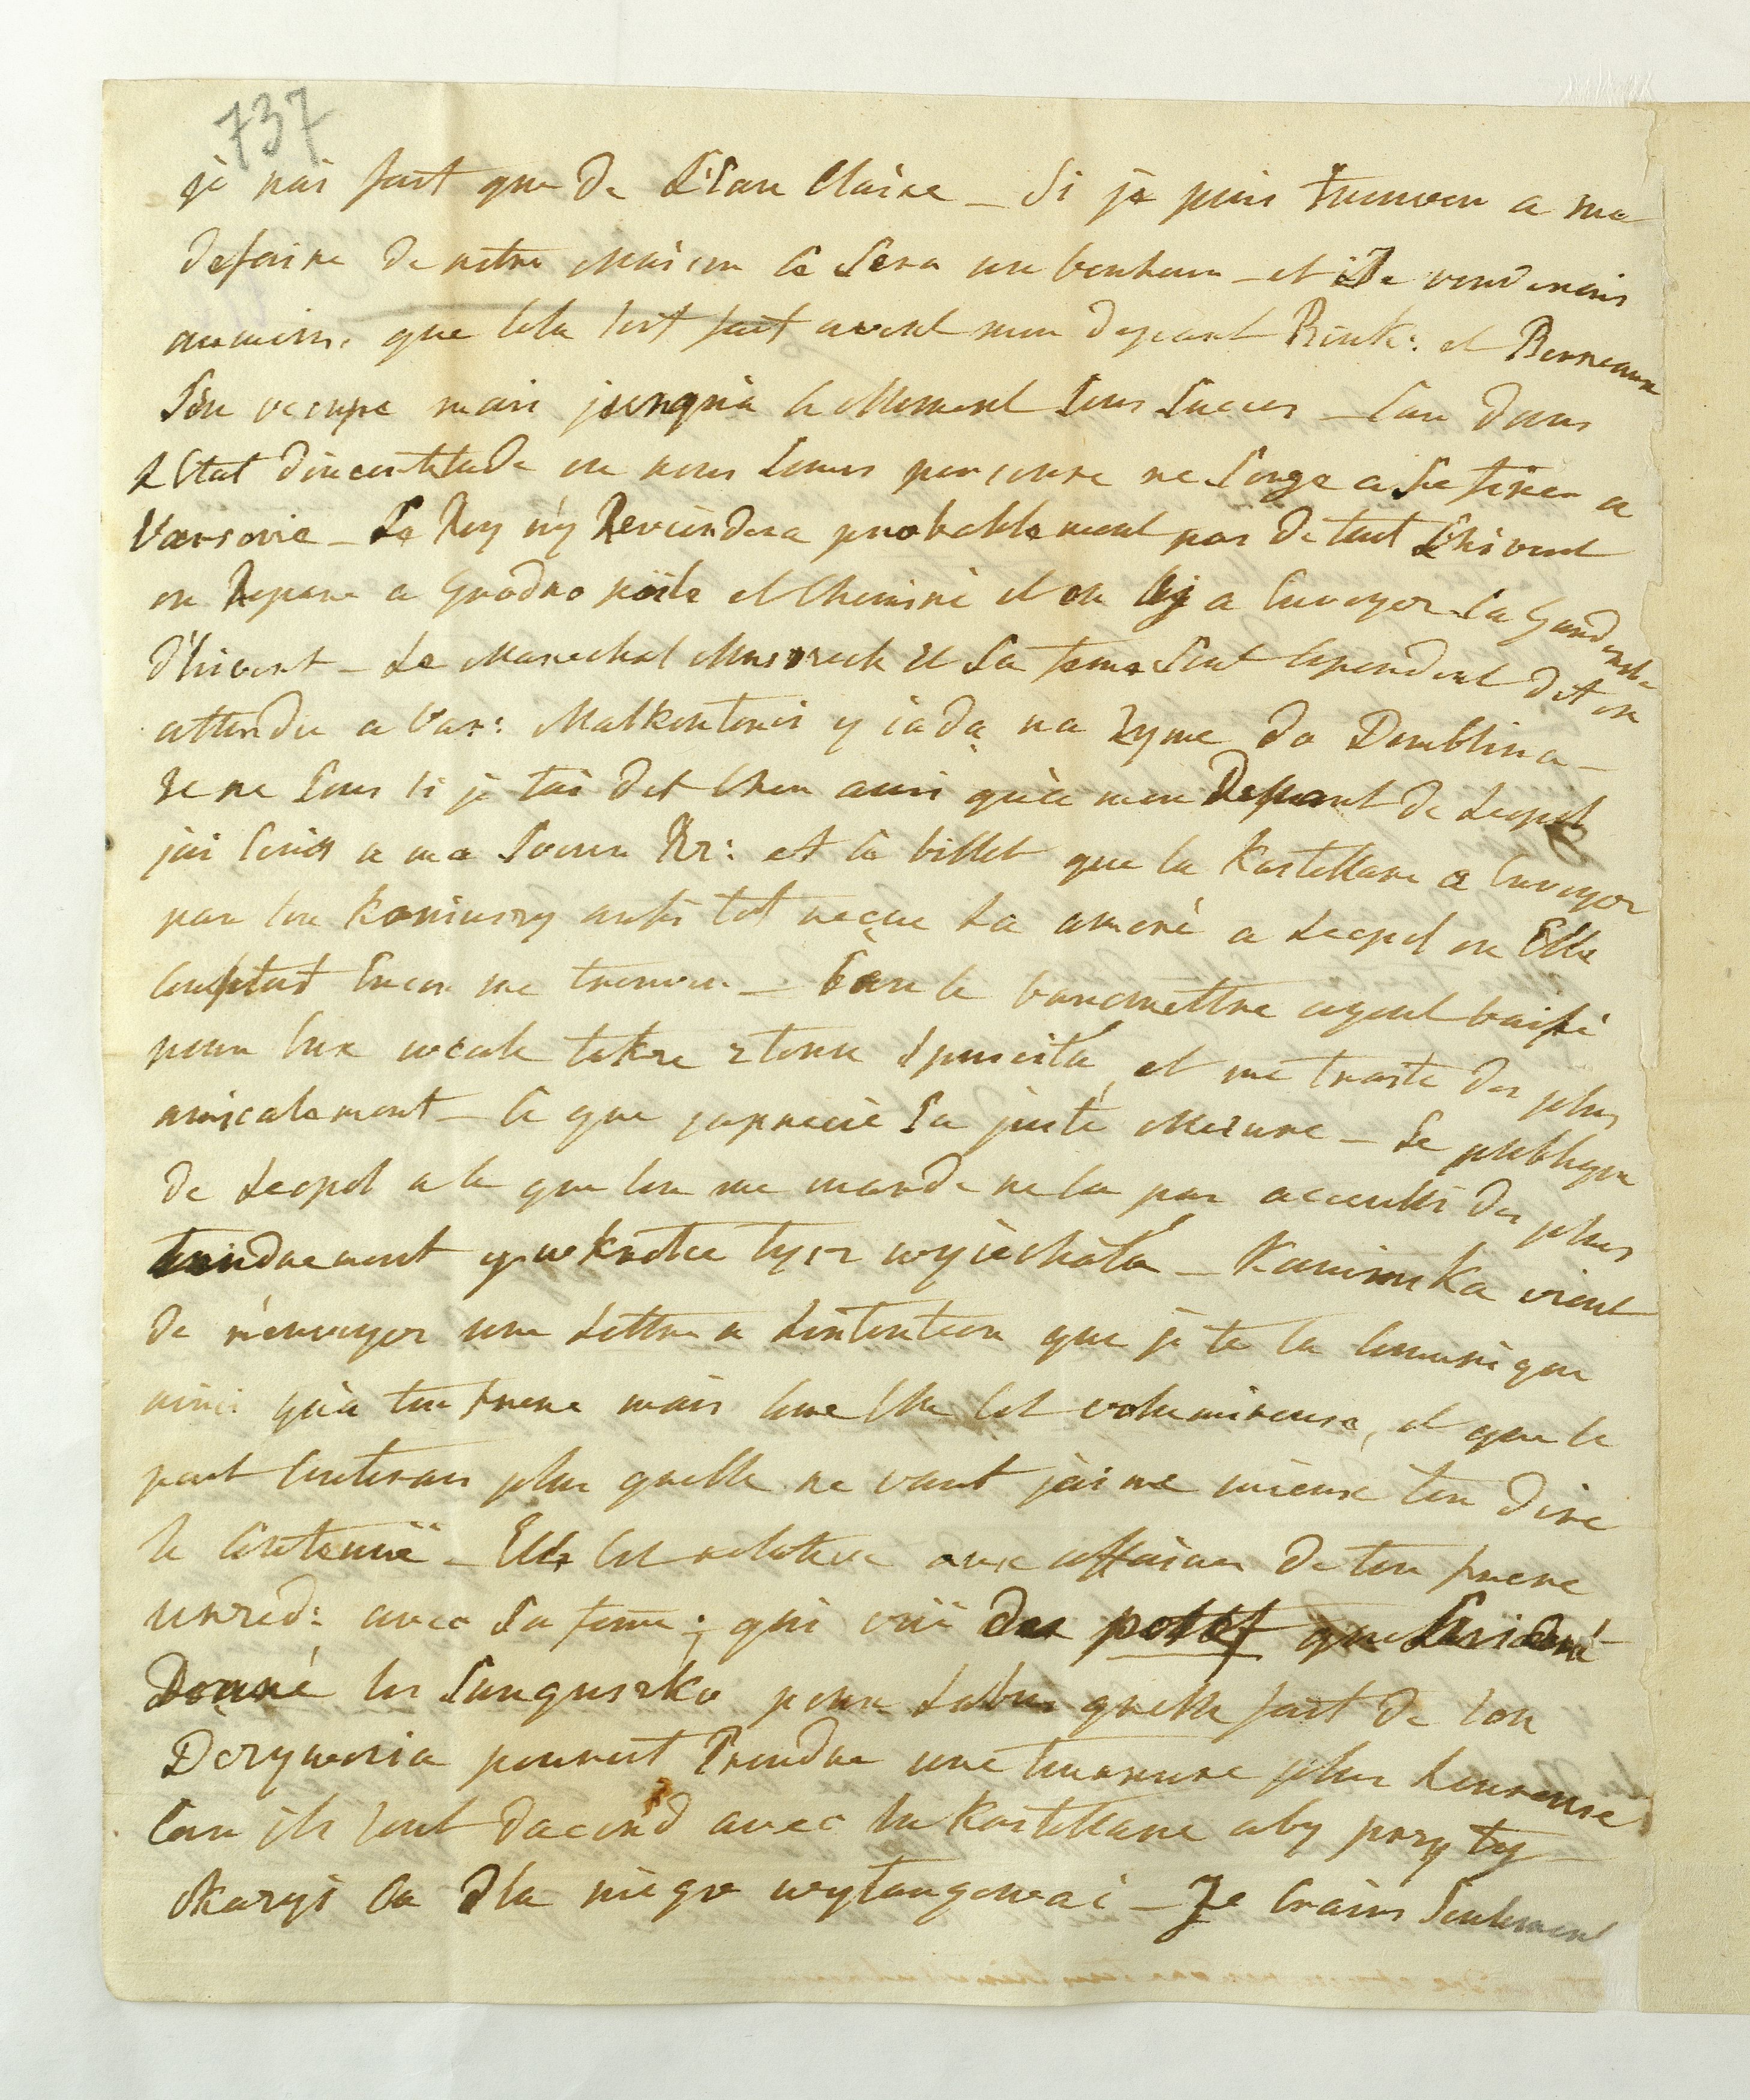 737
je nai fait que de L'Eau Claire _ Si je puis trouver a me
defaire de notre Maison ce Sera un bonheur _ et Je voudrais
aumoins que cela soit fait avant mon depart Rink: et Bonneaux
Sen occupe mais jusqua ce Moment sans succes _ Car dans
L'Etat dincertitude ou nous somes personne ne songe a se fixer a
Varsovie _ Le Roy n'y Reviendera probablement pas de tout L'hivert
on Repare a Grodno poile et Cheminé et on lui a envoyer Sa Garderobe
d'hivert _ Le Marechal Mnisreck et Sa feme sont cependent dit on
attendu a Var: Malkontenci y iadą na Zyme do Demblina _
Je ne sais si je tai dit Cher ami qu'a mon Depart de Leopol
jai ecrit a ma Soeur Kr: et ce billet que la Kastellane a envoyer
par son Koniuszy ausi tot reçue La amené a Leopol ou Elle
comptait encor me trouver _ Car le baromettre ayant baissé
pour eux wcale także z tonu spuściła, et me traite des plus
amicalement _ Ce que japrecie Sa juste Mesure _ Le publique
de Leopol a ce que lon me mande ne la pas accueilli des plus
tendrement y wkrotce tysz wyiechała _ Kaminska vient
de m'envoyer une Lettre a Lintention que je te la comunique
ainsi qu'a ton frere mais come elle est volumineuse, et que le
port couterais plus quelle ne vaut jaime mieux ten dire
le contenue _ Elle est relative aux affaires de ton frere
avec Sa feme; qui vue des que
Donné les Sanguszko pour Labus quelle fait de son
Dozywocia pouront Prendre une tournure plus heureuse
Car ils sont dacord avec la Kastellane aby przy tey
okazyi co dla niego wytargować _ Je crains Seulement